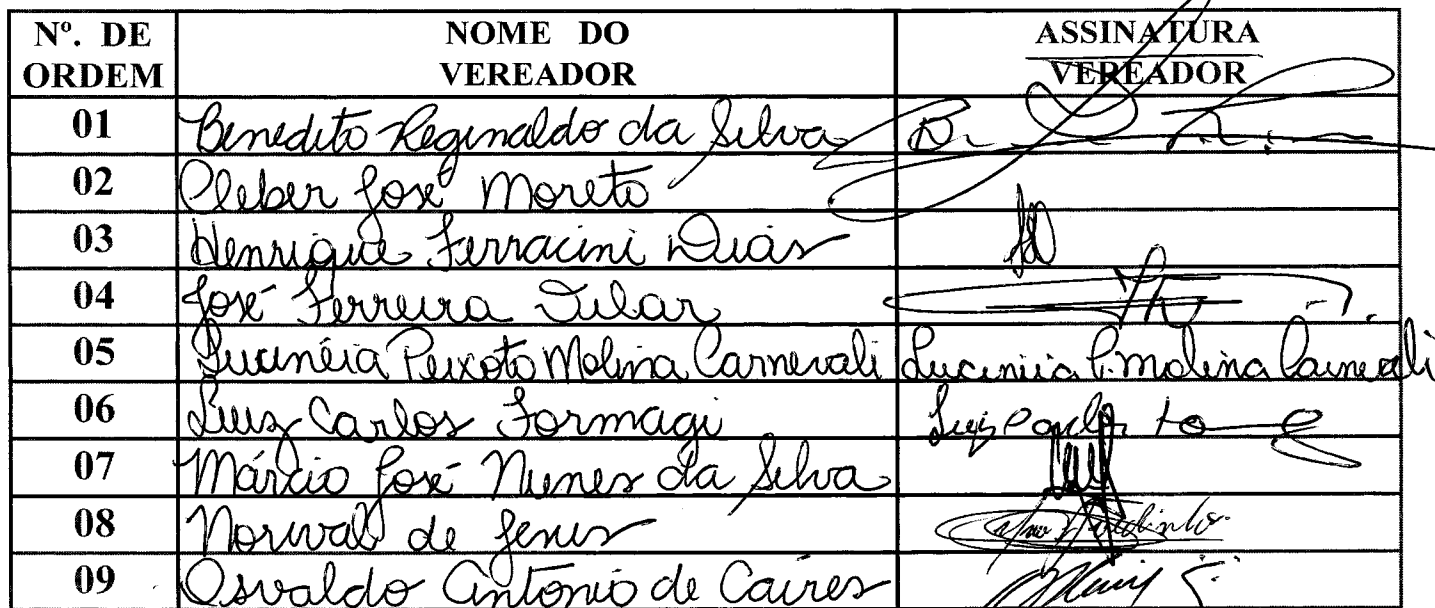 Nº. DE ORDEM NOME DO VEREADOR ASSINATURA VEREADOR
01 Benedito Reginaldo da Silva
02 Cleber José Moreto
03 Henrique Ferracini Dias
04 José Ferreira
05 Lucinéia Peixoto Molina Carnevali Lucinéia P. Molina Carnevali
06 Luiz Carlos Formagi Luiz Carlos
07 Márcio José Nunes da Silva
08 Norival de Jesus
09 Osvaldo Antonio de Caires